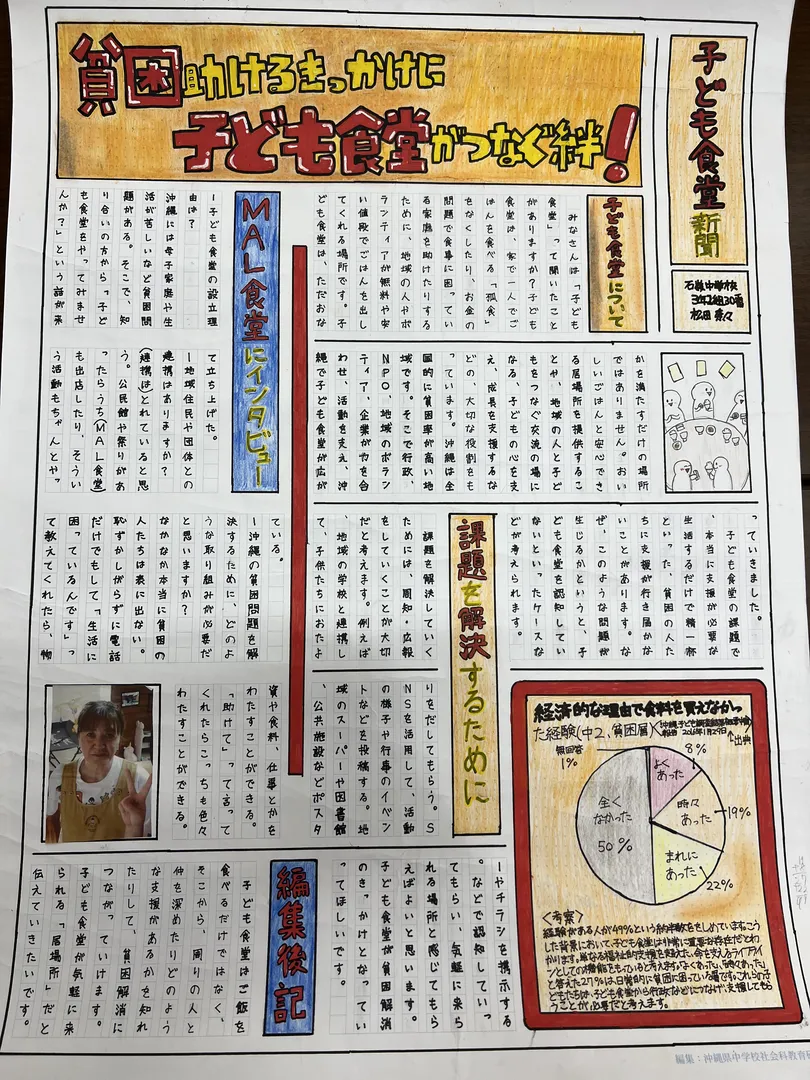 子ども食堂新聞
石嶺中学校
3年2組30番
松田 奈々
貧困助けるきっかけに
子ども食堂がつなぐ絆！
子ども食堂について
みなさんは「子ども
食堂」って聞いたこと
がありますか？子ども
食堂は、家で一人でご
はんを食べる「孤食」
をなくしたり、お金の
問題で食事に困ってい
る家庭を助けたりする
ために、地域の人やボ
ランティアが無料や安
い値段でごはんを出し
てくれる場所です。子
ども食堂は、ただおな
かを満たすだけの場所
ではありません。おい
しいごはんと安心でき
る居場所を提供するこ
とや、地域の人と子ど
もをつなぐ交流の場に
なる、子どもの心を支
え、成長を支援するな
どの、大切な役割をも
っています。沖縄は全
国的に貧困率が高い地
域です。そこで行政、
NPO、地域のボラン
ティア、企業が力を合
わせ、活動を支え、沖
縄で子ども食堂が広が
っていきました。
子ども食堂の課題で
、本当に支援が必要な
生活するだけで精一杯
といった、貧困の人た
ちに支援が行き届かな
いことがあります。な
ぜ、このような問題が
生じるかというと、子
ども食堂を認知してい
ないといったケースな
どが考えられます。
課題を解決するために
課題を解決していく
ためには、周知・広報
をしていくことが大切
だと考えます。例えば
、地域の学校と連携し
て、子供たちにおたよ
りをだしてもらう。S
NSを活用して、活動
の様子や行事のイベン
トなどを投稿する。地
域のスーパーや図書館
、公共施設などポスタ
ーやチラシを掲示する
。などで認知していっ
てもらい、気軽に来ら
れる場所と感じてもら
えばよいと思います。
子ども食堂が貧困解消
のきっかけとなってい
ってほしいです。
経済的な理由で食料を買えなかっ
た経験(中2、貧困層)
↑出典
無回答
1%
よく
あった
8%
時々
あった
19%
まれに
あった
22%
全く
なかった
50%
<考察>
経験がある人が49%という約半数をしめています。こう
した背景において、子ども食堂は非常に重要な存在だとわ
かります。単なる福祉的支援を超えた、命を支えるライフライ
ンとしての機能をもっていると考えます。よくあった、時々あった
と答えた27%は、日常的に貧困に困っている層です。これらの子
どもたちが、子ども食堂から行政などにつなげ、支援してもら
うことが必要だと考えます。
MAL食堂にインタビュー
ー子ども食堂の設立理
由は？
沖縄には母子家庭や生
活が苦しいなど貧困問
題がある。そこで、知
り合いの方から「子ど
も食堂をやってみませ
んか？」という話が来
て立ち上げた。
ー地域住民や団体との
連携はありますか？
(連携は)とれていると思
う。公民館や祭りがあ
ったらうち(MAL食堂)
も出店したり、そうい
う活動もちゃんとやっ
ている。
ー沖縄の貧困問題を解
決するために、どのよ
うな取り組みが必要だ
と思いますか？
なかなか本当に貧困の
人たちは表に出ない。
恥ずかしがらずに電話
だけでもして「生活に
困っているんです」っ
て教えてくれたら、物
資や食料、仕事とかを
わたすことができる。
「助けて」って言って
くれたらこっちも色々
わたすことができる。
編集後記
子ども食堂はご飯を
食べるだけではなく、
そこから、周りの人と
仲を深めたりどのよう
な支援があるかを知れ
たりして、貧困解消に
つながっていけます。
子ども食堂が気軽に来
られる「居場所」だと
伝えていきたいです。
編集：沖縄県中学校社会科教育研